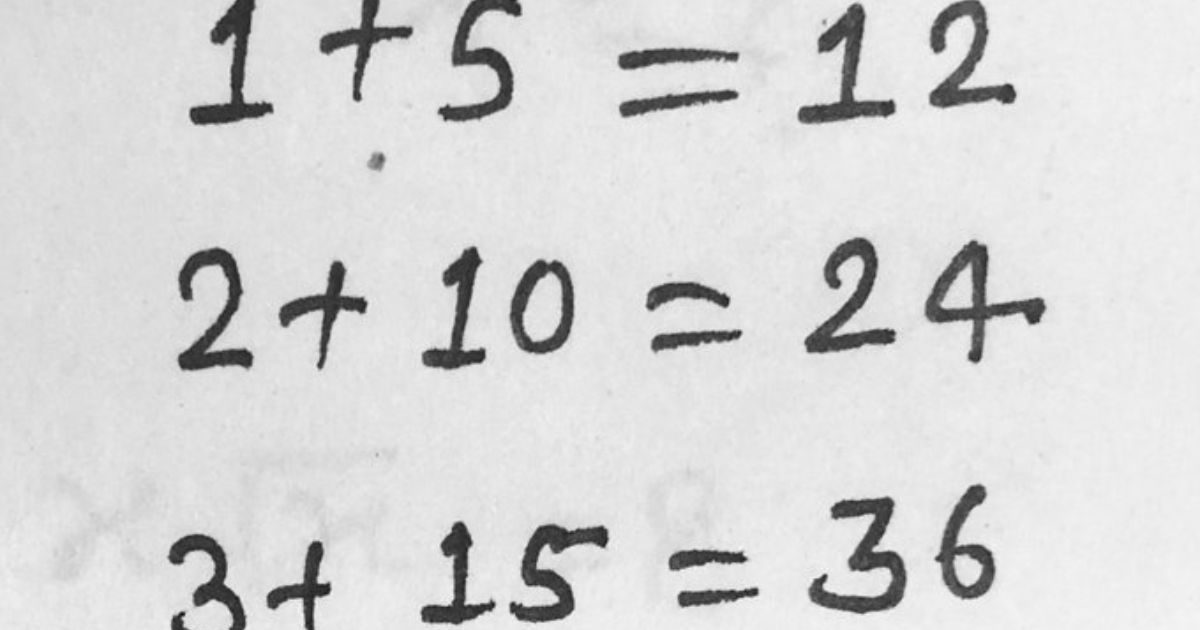 1 + 5 = 12
2 + 10 = 24
3 + 15 = 36